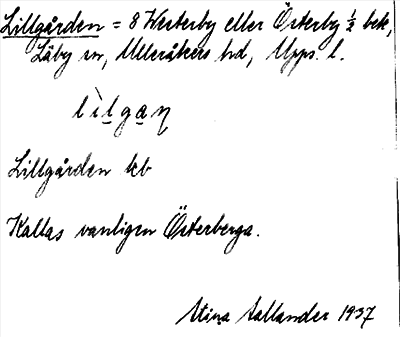 Lillgården = 8 Westerby eller Österby ½ bek,
Läby sn, Ulleråkers hd, Upps. l.
lìlgaη
Lillgården kb
Kallas vanligen Österberga.
Stina Sallander 1937